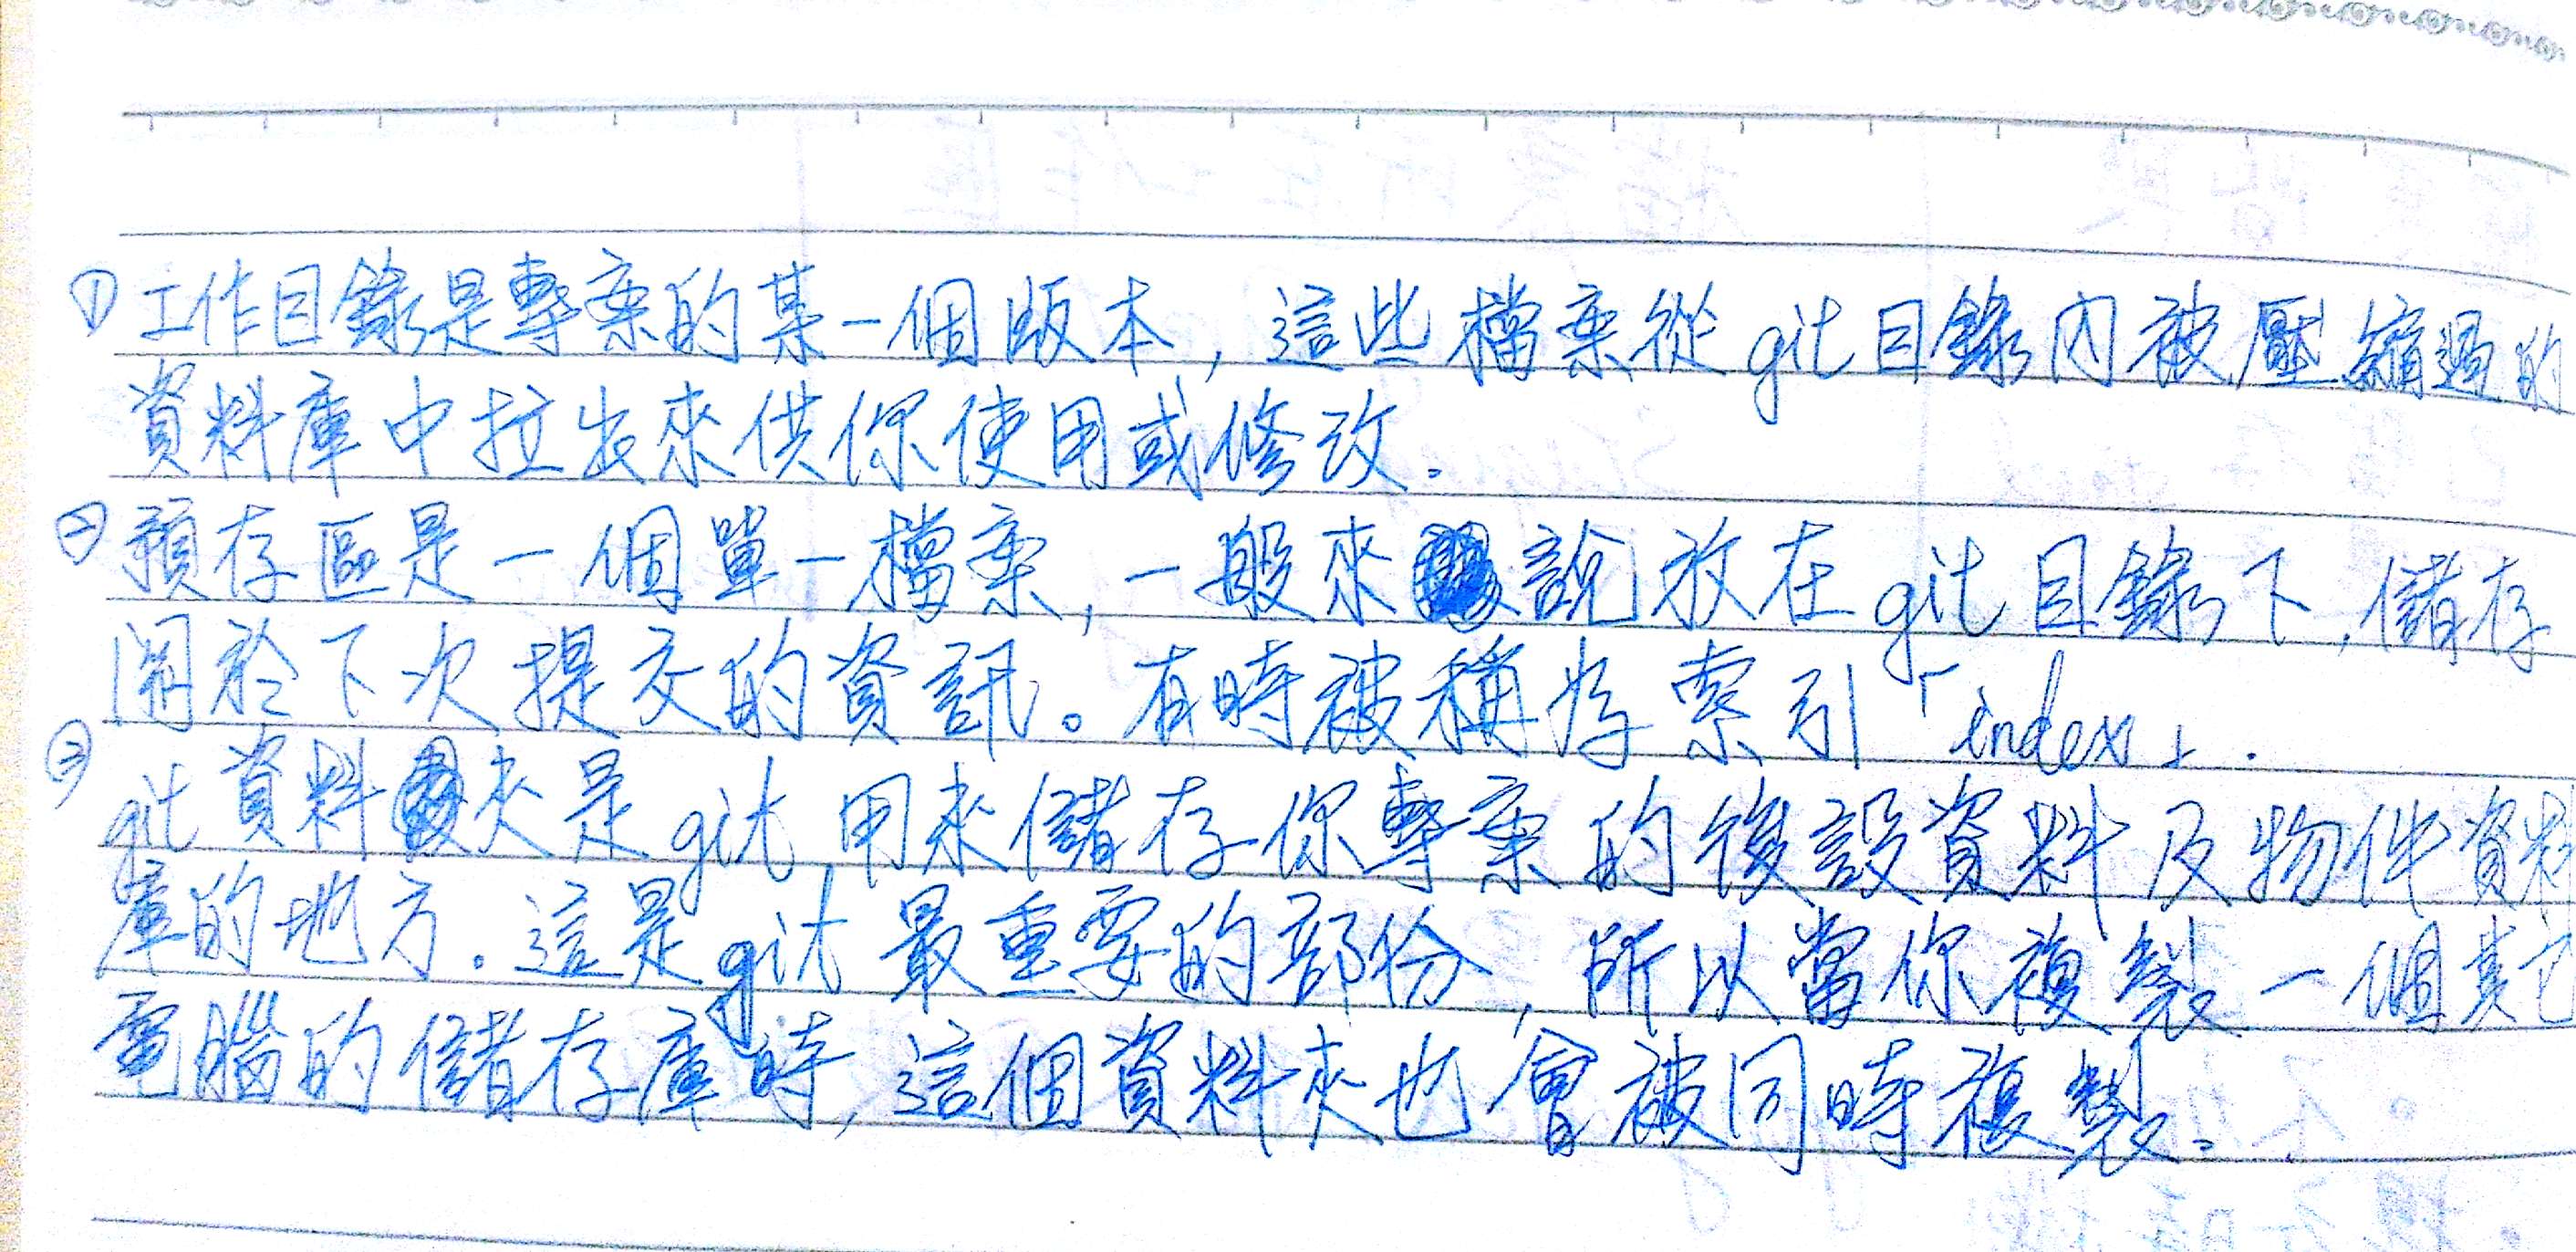 ①工作目錄是專案的某一個版本,這些檔案從git目錄內被壓縮過的
資料庫中拉出來供你使用或修改。
②預存區是一個單一檔案,一般來說放在git目錄下,儲存
關於下次提交的資訊。有時被稱為索引「index」.
③git資料夾是git用來儲存你專案的後設資料及物件資料
庫的地方。這是git最重要的部份,所以當你複製一個其它
電腦的儲存庫時,這個資料夾也會被同時複製。